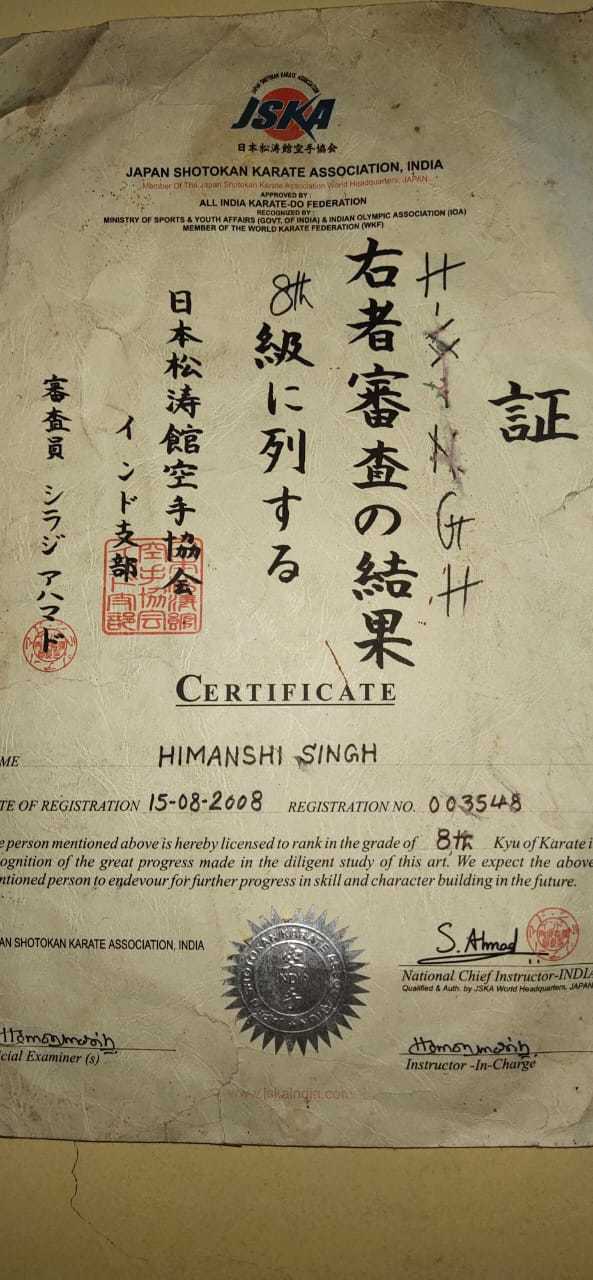 JAPAN SHOTOKAN KARATE ASSOCIATION
JSKA
日本松涛館空手協会
JAPAN SHOTOKAN KARATE ASSOCIATION, INDIA
Member Of The Japan Shotokan Karate Association World Headquarters, JAPAN.
APPROVED BY :
ALL INDIA KARATE-DO FEDERATION
RECOGNIZED BY :
MINISTRY OF SPORTS & YOUTH AFFAIRS (GOVT. OF INDIA) & INDIAN OLYMPIC ASSOCIATION (IOA)
MEMBER OF THE WORLD KARATE FEDERATION (WKF)
証
右者審査の結果
8th 級に列する
日本松涛館空手協会
インド支部
審査員 シラジ アハマド
CERTIFICATE
ME HIMANSHI SINGH
TE OF REGISTRATION 15-08-2008 REGISTRATION NO. 003548
e person mentioned above is hereby licensed to rank in the grade of 8th Kyu of Karate i
ognition of the great progress made in the diligent study of this art. We expect the above
ntioned person to endevour for further progress in skill and character building in the future.
AN SHOTOKAN KARATE ASSOCIATION, INDIA
S. Ahmad
National Chief Instructor-INDIA
Qualified & Auth. by JSKA World Headquarters, JAPAN
空
INDIA
手
cial Examiner (s)
Instructor -In-Charge
www.jskaindia.com